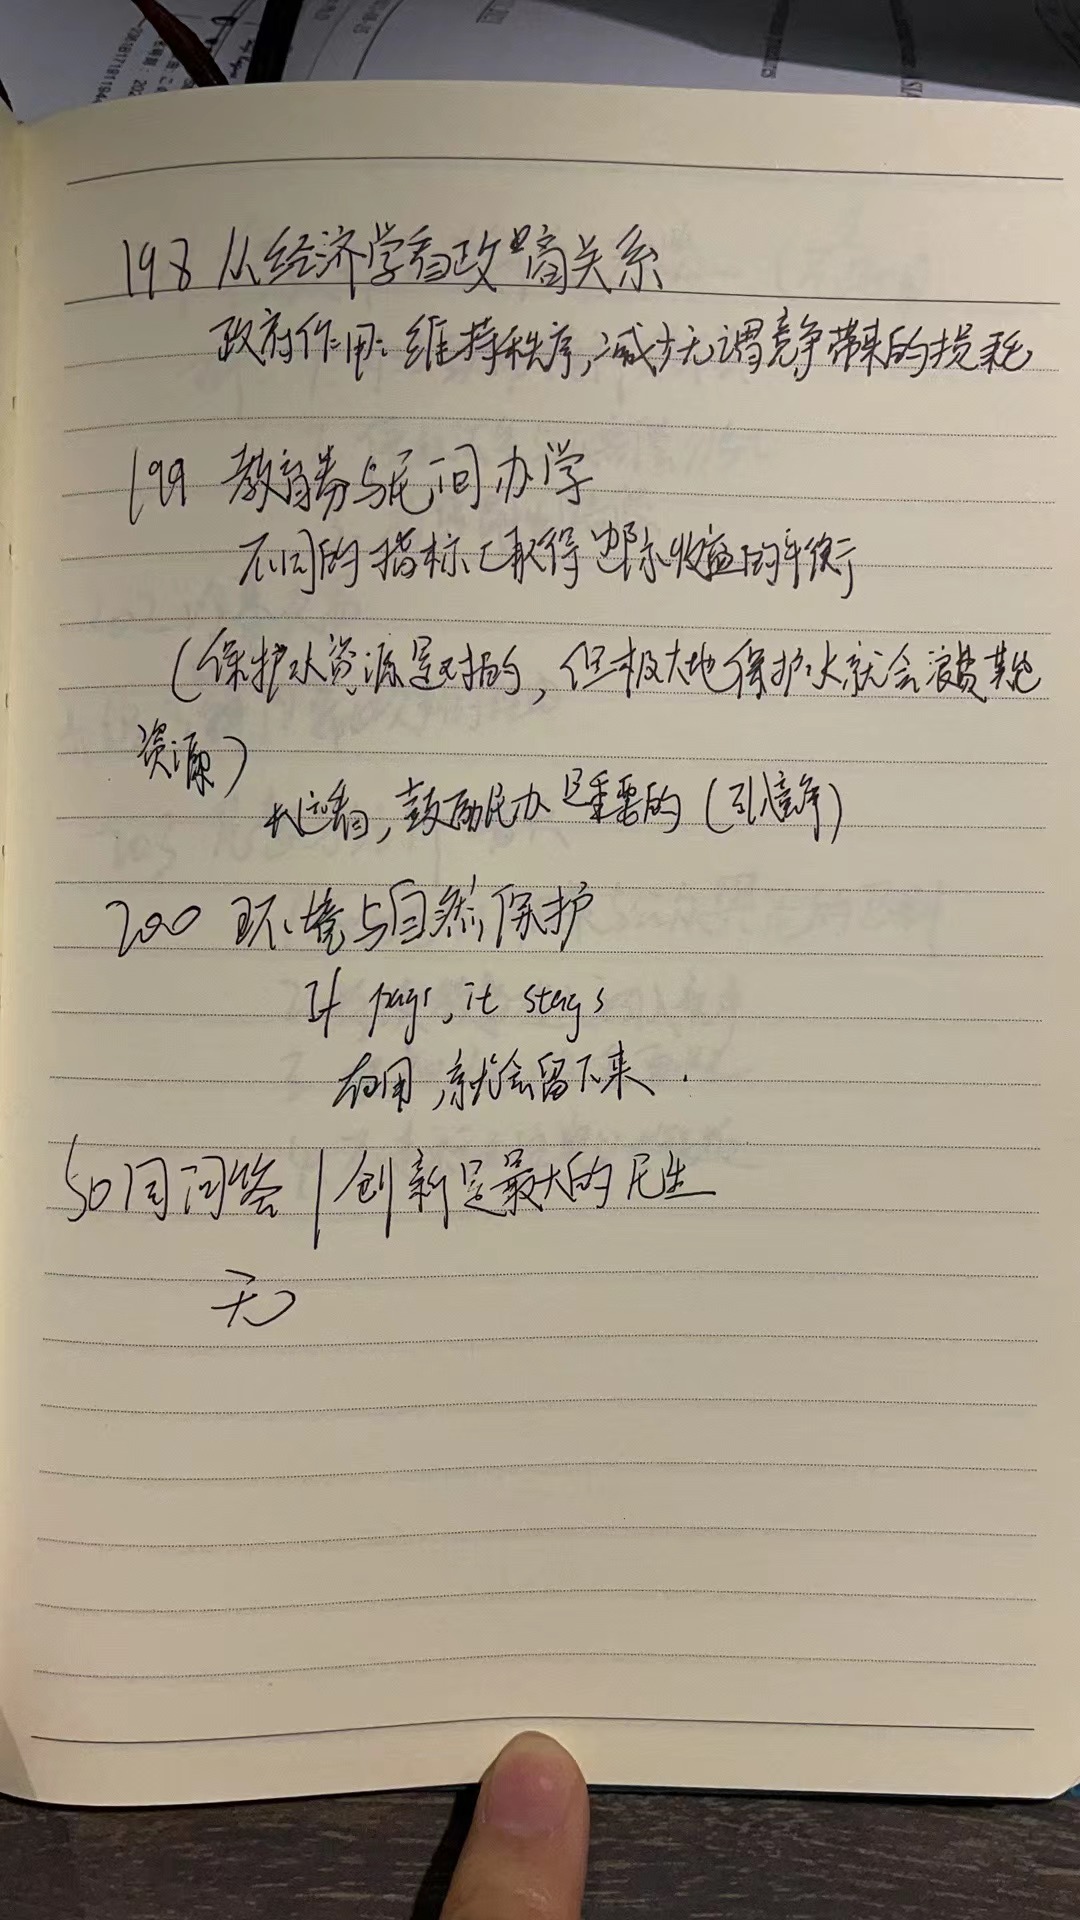 198 从经济学看政商关系
政府作用: 维持秩序, 减少无谓竞争带来的损耗
199 教育券与民间办学
不同的指标上取得边际收益的平衡
(保护水资源是对的, 但极大地保护水就会浪费其他
资源)
长远看, 鼓励民办是重要的 (引竞争)
200 环境与自然保护
If pays, it stays
有用, 就会留下来.
50周问答 | 创新是最大的民生
无